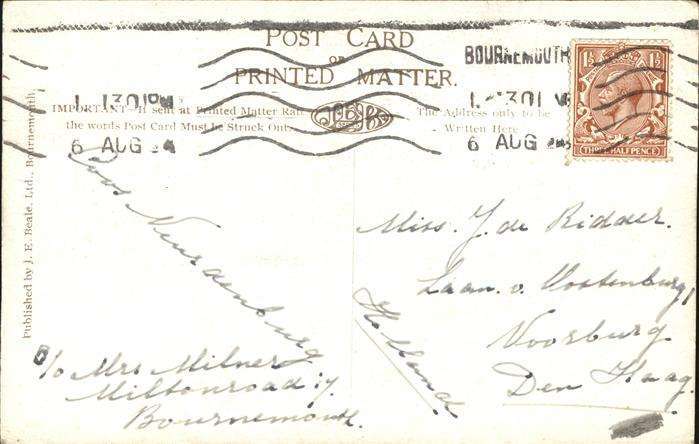 POST CARD
OR
PRINTED MATTER.
BOURNEMOUTH
1 30 PM
6 AUG 24
6 AUG
IMPORTANT If Sent at Printed Matter Rate
the words Post Card Must be Struck Out.
JEB
The Address only to be
Written Here
1½ 1½
THREE HALFPENCE
Published by J. E. Beale, Ltd., Bournemouth.
Coos Neurdenburg
B/o Mrs Milner
Miltonroad 17
Bournemouth.
Miss. J. de Ridder.
Laan. v. Oostenburg,
Voorburg
Den Haag.
Holland